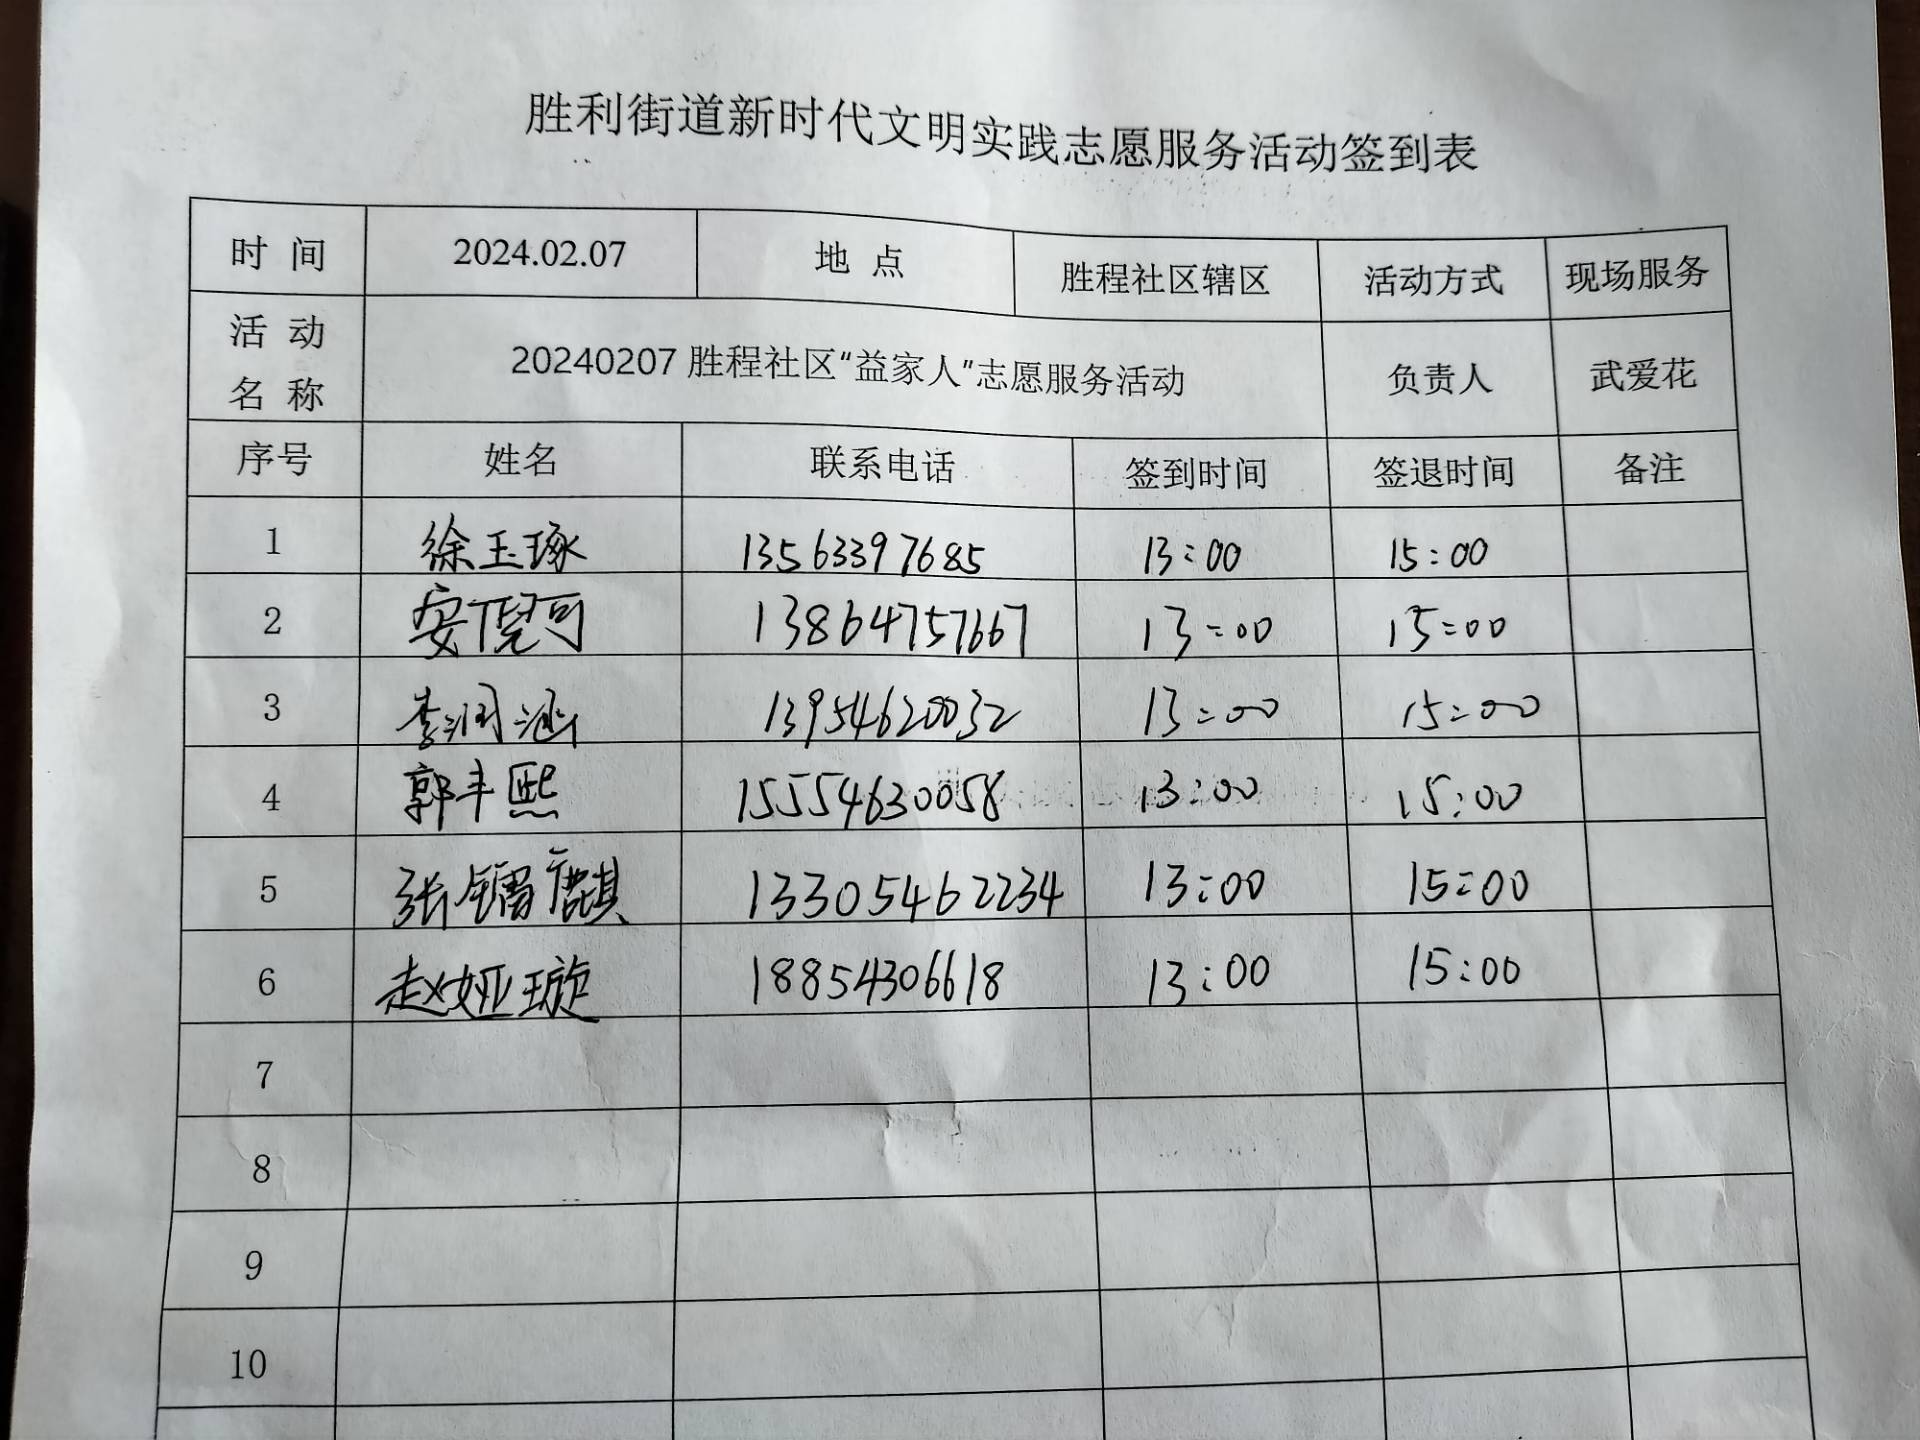 胜利街道新时代文明实践志愿服务活动签到表
时 间 2024.02.07 地 点 胜程社区辖区 活动方式 现场服务
活 动
名 称 20240207 胜程社区“益家人”志愿服务活动 负责人 武爱花
序号 姓名 联系电话 签到时间 签退时间 备注
1 徐玉琢 13563397685 13:00 15:00
2 13864757667 13:00 15:00
3 李润涵 13954620032 13:00 15:00
4 郭丰熙 15554630058 13:00 15:00
5 张镭麒 13305462234 13:00 15:00
6 赵娅璇 18854306618 13:00 15:00
7
8
9
10